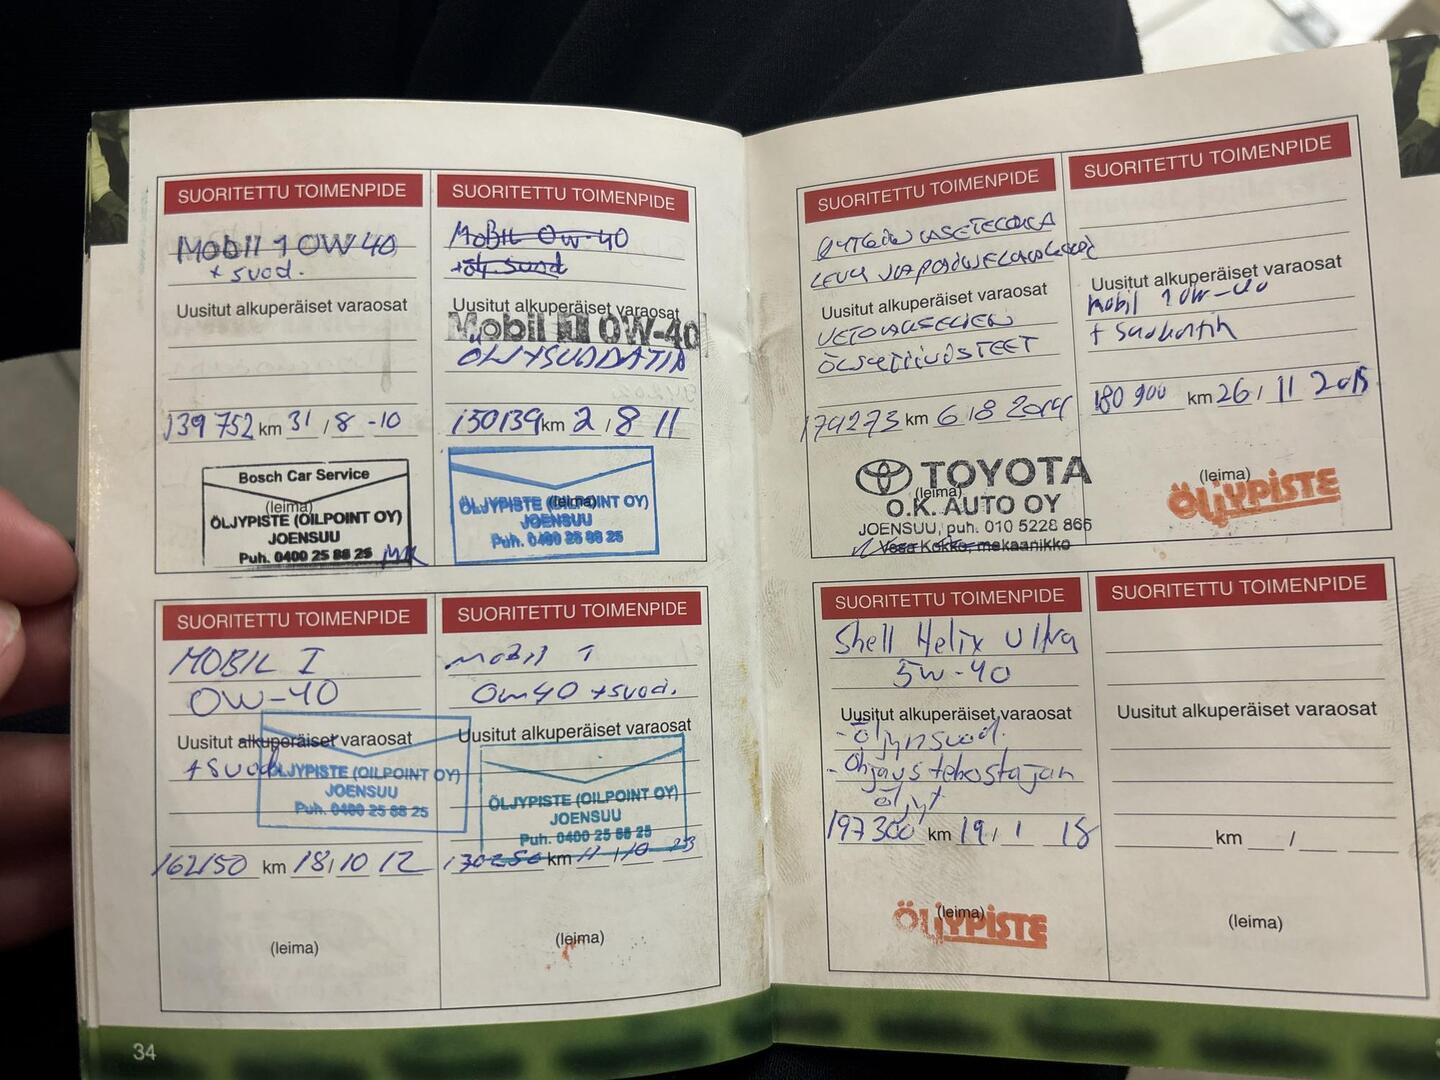 SUORITETTU TOIMENPIDE
Mobil 1 0W40
+ suod.
Uusitut alkuperäiset varaosat
139 752 km 31 / 8 -10
Bosch Car Service
(leima)
ÖLJYPISTE (OILPOINT OY)
JOENSUU
Puh. 0400 25 88 25
SUORITETTU TOIMENPIDE
Mobil 0w-40
+ölj.suod
Uusitut alkuperäiset varaosat
Mobil 1 0W-40
ÖLJYSUODATIN
150139 km 2 / 8 11
(leima)
ÖLJYPISTE (OILPOINT OY)
JOENSUU
Puh. 0400 25 88 25
SUORITETTU TOIMENPIDE
MOBIL I
0W-40
Uusitut alkuperäiset varaosat
+ suod
ÖLJYPISTE (OILPOINT OY)
JOENSUU
Puh. 0400 25 88 25
162150 km 18 / 10 12
(leima)
SUORITETTU TOIMENPIDE
Mobil 1
0w40 +suod.
Uusitut alkuperäiset varaosat
ÖLJYPISTE (OILPOINT OY)
JOENSUU
Puh. 0400 25 88 25
km 11 / 10
(leima)
34
SUORITETTU TOIMENPIDE
Uusitut alkuperäiset varaosat
VETOAKSELIEN
ÖLJYTIIVISTEET
174273 km 6 / 8 2014
TOYOTA
(leima)
O.K. AUTO OY
JOENSUU, puh. 010 5228 866
Vesa Kokko, mekaanikko
SUORITETTU TOIMENPIDE
Uusitut alkuperäiset varaosat
Mobil 1 0W-40
+ Suodatin
180 900 km 26 / 11 2015
(leima)
ÖLJYPISTE
SUORITETTU TOIMENPIDE
Shell Helix Ultra
5w-40
Uusitut alkuperäiset varaosat
- Öljynsuod.
- Ohjaustehostajan
öljyt
197 300 km 19 / 1 18
(leima)
ÖLJYPISTE
SUORITETTU TOIMENPIDE
Uusitut alkuperäiset varaosat
km /
(leima)